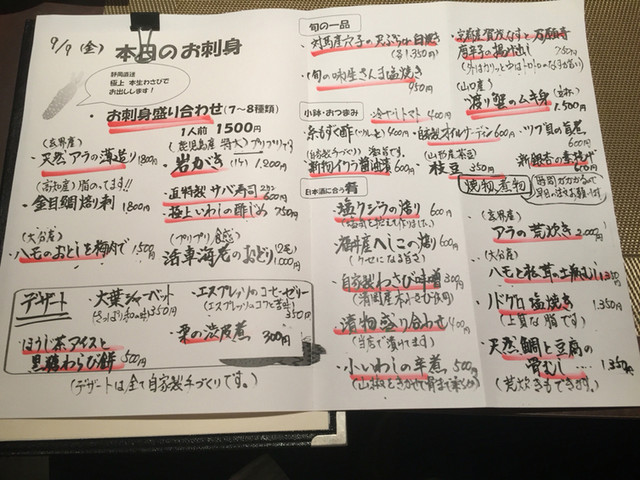 9/9(金)
本日のお刺身
静岡直送
極上 本生わさびで
お出しします!
・お刺身盛り合わせ(7〜8種類)
1人前 1500円
(玄界産)
・天然アラの薄造り 1800円
(鹿児島産 特大)プリプリッ
・岩がき(1ケ) 1,200円
(高知産)脂のってます!!
・金目鯛焙り刺 1800円
・直特製 サバ寿司 2カン 600円
・極上いわしの酢じめ 750円
(大分産)
・ハモのおとしを梅肉で 1,500円
(プリプリ食感)
・活車海老のおどり(2尾) 1,000円
デザート
・大葉シャーベット
(さっぱり和の味) 350円
・エスプレッソのコーヒーゼリー
(エスプレッソのコクと苦味) 350円
・ほうじ茶アイスと
黒糖わらび餅 500円
・栗の渋皮煮 300円
(デザートは全て自家製手づくりです。)
旬の一品
・対馬産穴子の天ぷらor白焼き
(各1,350円)
・旬の味生さんま塩焼き
950円
・京都産賀茂なすと万願寺
唐辛子の揚げ出し 750円
(外はカリッと中はトロトロのなす旨い)
(山口産)
・渡り蟹のムキ身 1,500円
小鉢・おつまみ
・冷やしトマト 400円
・糸もずく酢 400円
・自家製オイルサーデン 600円
・ツブ貝の旨煮 600円
・新物イクラ醤油漬 600円
(山形産茶豆)
・枝豆 350円
・新銀杏の素揚げ 600円
日本酒に合う肴
・塩クジラの焙り 600円
・福井産へしこの焙り 600円
(クセになる旨さ)
・自家製わさび味噌 300円
(静岡産本わさび使用)
・漬物盛り合わせ 400円
(当店で漬けてます)
・小いわしの辛煮 500円
(山椒をきかせて骨まで柔らか)
焼物、煮物
時間がかかるので
早目の注文お願いします
(玄界産)
・アラの荒炊き 2,000円
(大分産)
・ハモと松茸の土瓶むし 1,350円
・ノドグロ塩焼き 1,350円
(上質な脂です)
・天然鯛と豆腐の
骨むし 1,350円
(荒炊きもできます。)